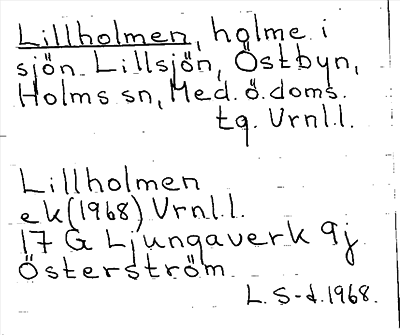 Lillholmen, holme i
sjön Lillsjön, Östbyn,
Holms sn, Med. ö. doms.
tg. Vrnl.l.
Lillholmen
ek (1968) Vrnl.l.
17 G Ljungaverk 9j
Österström
L. S-d. 1968.